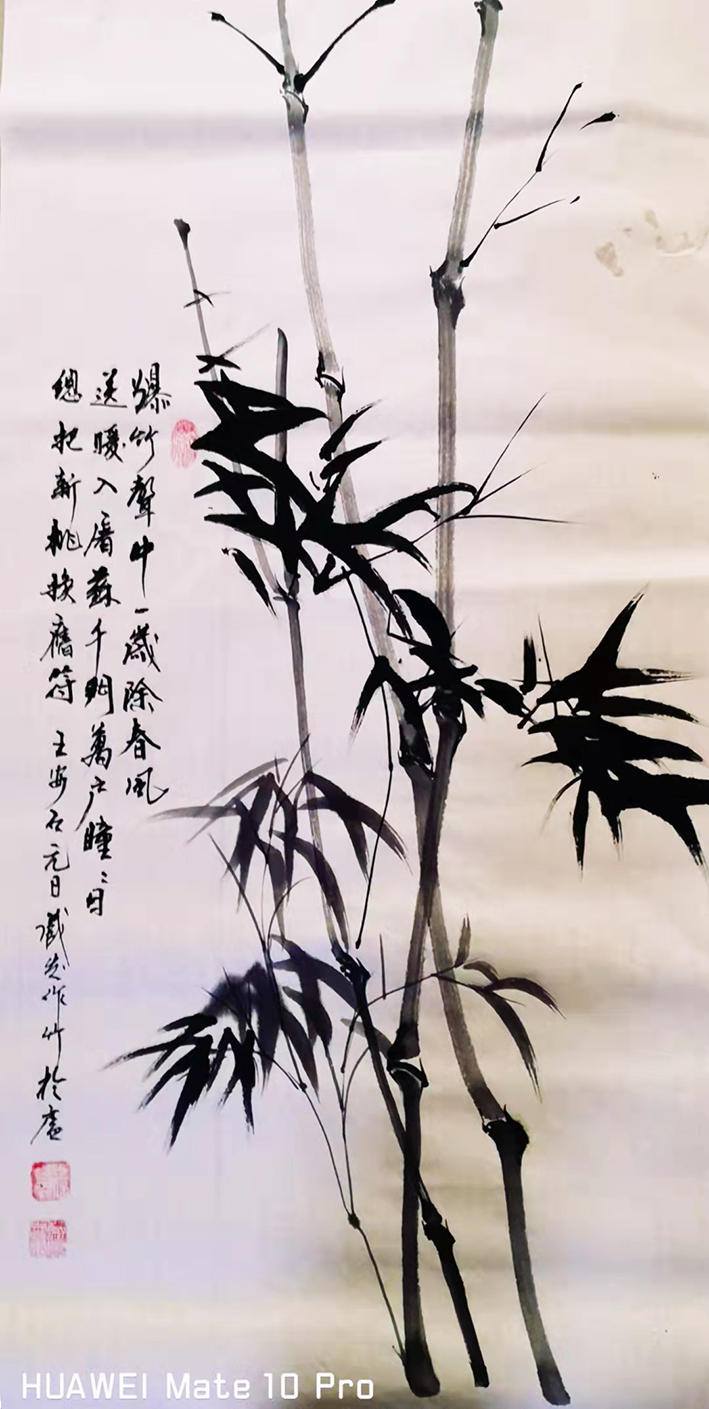 爆竹聲中一歲除春風
送暖入屠蘇千門萬戶瞳〻日
總把新桃換舊符 王安石元日 作竹於
HUAWEI Mate 10 Pro